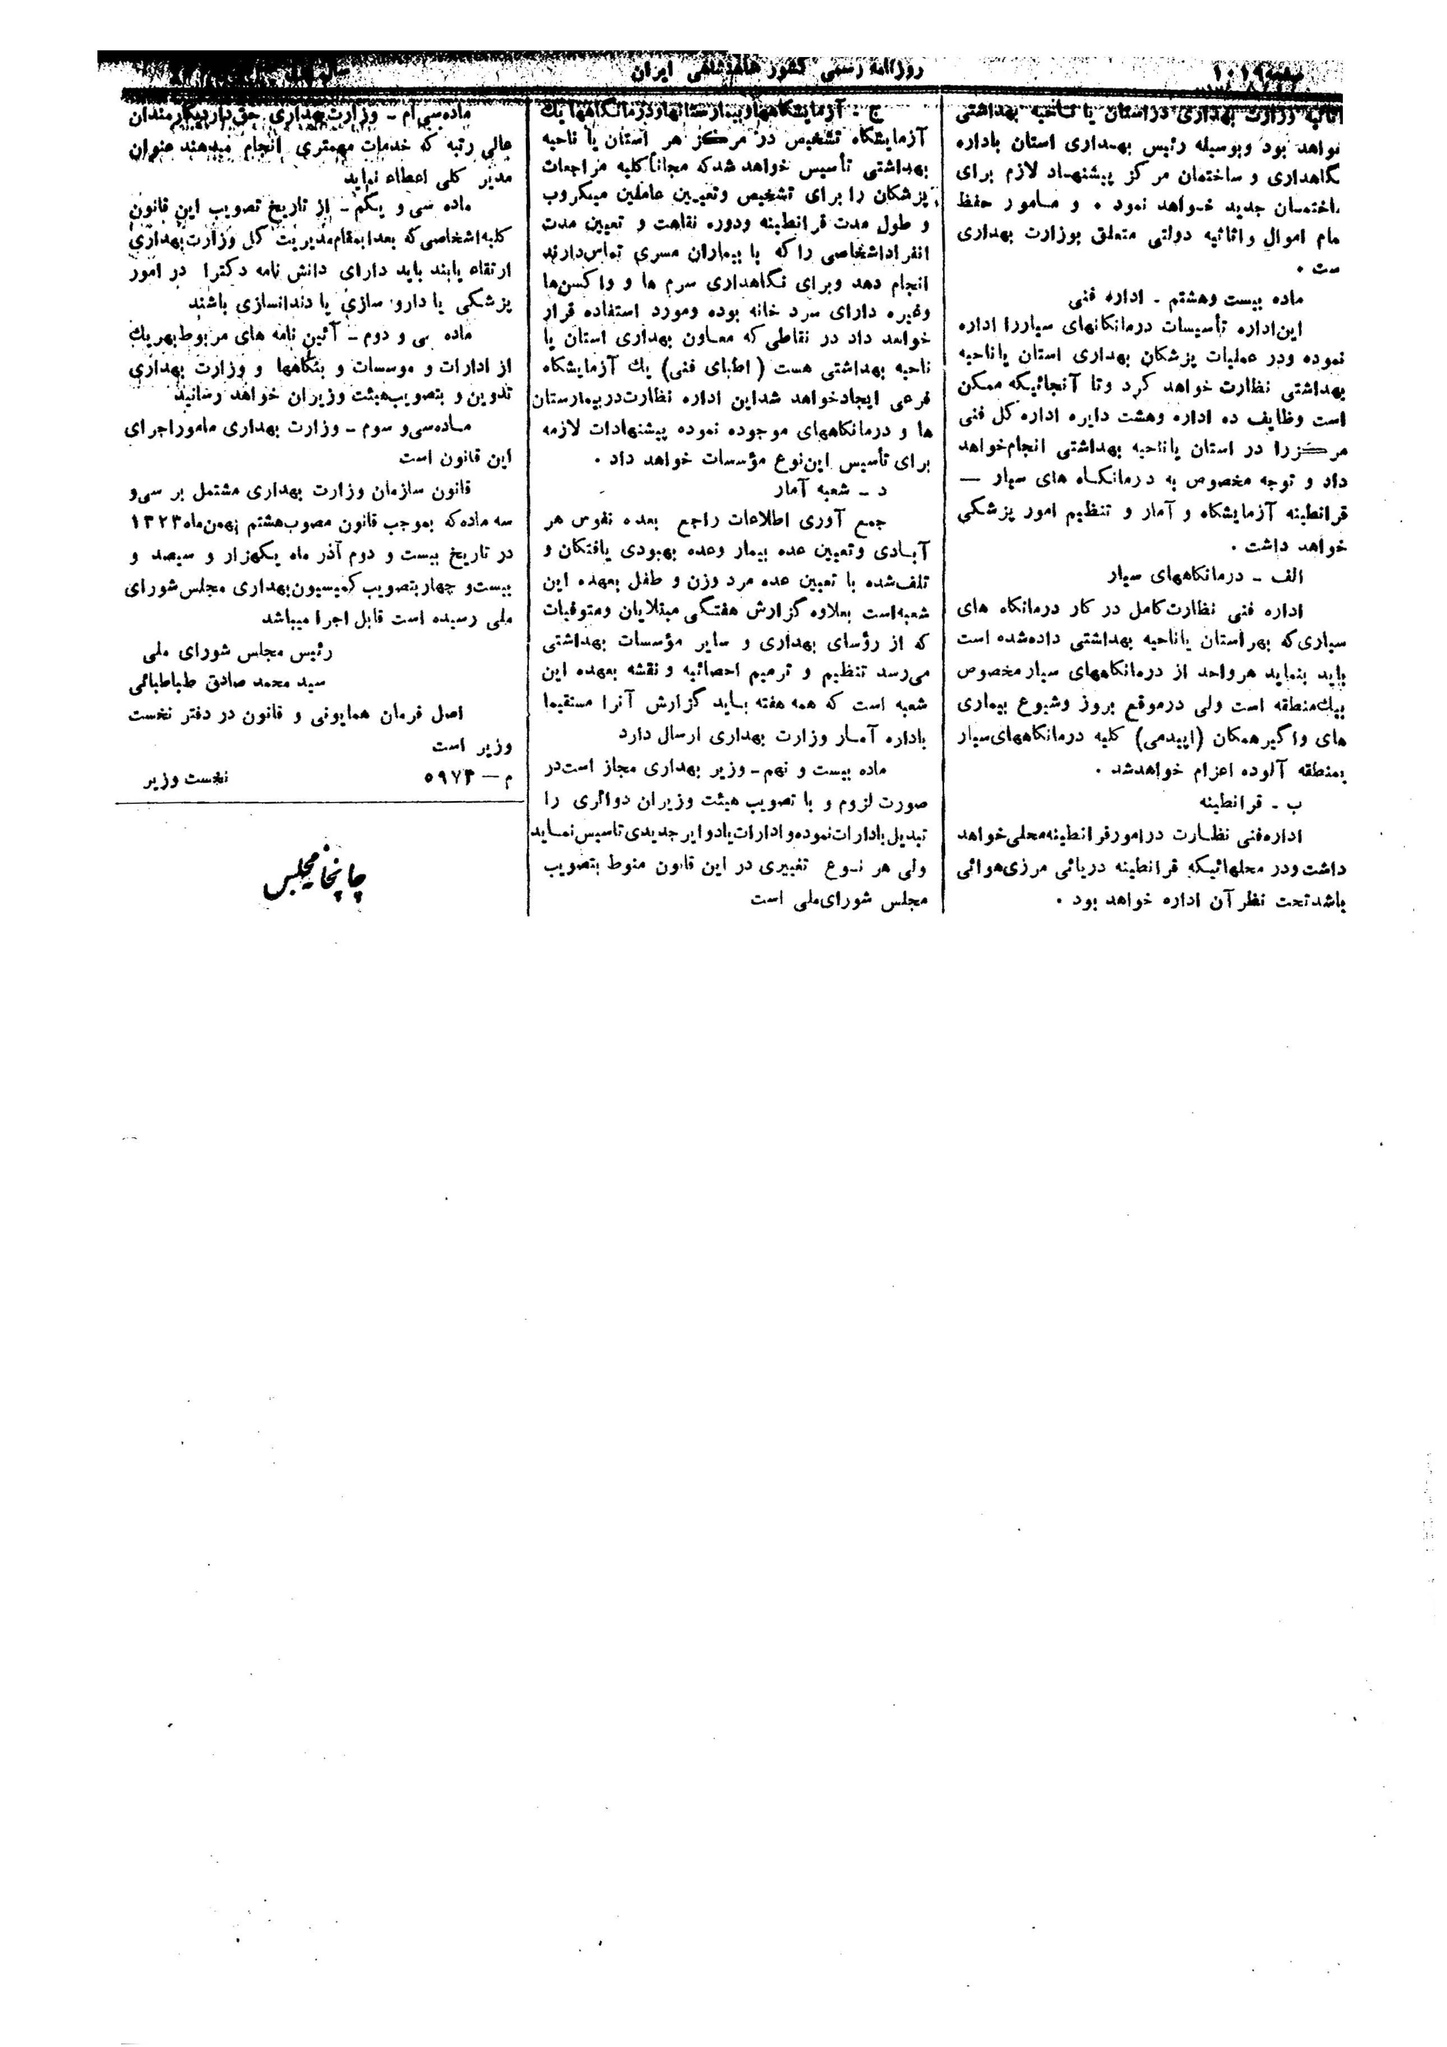 صفحه ۱۰۱۹
روزنامه رسمی کشور شاهنشاهی ایران
سال
اثاثیه وزارت بهداری در استان یا ناحیه بهداشتی
خواهد بود وبوسیله رئیس بهداری استان باداره
نگاهداری و ساختمان مرکز پیشنهاد لازم برای
ساختمان جدید خواهد نمود . و مامور حفظ
مام اموال و اثاثیه دولتی متعلق بوزارت بهداری
ست .
ماده بیست وهشتم - اداره فنی
این اداره تأسیسات درمانگاههای سیار را اداره
نموده ودر عملیات پزشکان بهداری استان یا ناحیه
بهداشتی نظارت خواهد کرد وتا آنجائیکه ممکن
است وظایف ده اداره وهشت دایره اداره کل فنی
مرکز را در استان یا ناحیه بهداشتی انجام خواهد
داد و توجه مخصوص به درمانگاه های سیار —
قرانطینه آزمایشگاه و آمار و تنظیم امور پزشکی
خواهد داشت .
الف - درمانگاههای سیار
اداره فنی نظارت کامل در کار درمانگاه های
سیاری که بهر استان یا ناحیه بهداشتی داده شده است
باید بنماید هر واحد از درمانگاههای سیار مخصوص
بیك منطقه است ولی در موقع بروز وشیوع بیماری
های واگیر همگان (اپیدمی) کلیه درمانگاههای سیار
بمنطقه آلوده اعزام خواهد شد .
ب - قرانطینه
اداره فنی نظارت در امور قرانطینه محلی خواهد
داشت ودر محلهائیکه قرانطینه دریائی مرزی هوائی
باشد تحت نظر آن اداره خواهد بود .
ج : آزمایشگاهها و بیمارستانها و درمانگاهها یك
آزمایشگاه تشخیص در مرکز هر استان یا ناحیه
بهداشتی تأسیس خواهد شد که مجاناً کلیه مراجعات
پزشکان را برای تشخیص وتعیین عاملین میکروب
و طول مدت قرانطینه ودوره نقاهت و تعیین مدت
انفراد اشخاصی را که با بیماران مسری تماس دارند
انجام دهد وبرای نگاهداری سرم ها و واکسن‌ها
وغیره دارای سرد خانه بوده ومورد استفاده قرار
خواهد داد در نقاطی که معاون بهداری استان یا
ناحیه بهداشتی هست (اطبای فنی) یك آزمایشگاه
فرعی ایجاد خواهد شد این اداره نظارت در بیمارستان
ها و درمانگاههای موجوده نموده پیشنهادات لازمه
برای تأسیس این نوع مؤسسات خواهد داد .
د - شعبه آمار
جمع آوری اطلاعات راجع بعده نفوس هر
آبادی وتعیین عده بیمار وعده بهبودی یافتگان و
تلف شده با تعیین عده مرد وزن و طفل بعهده این
شعبه است بعلاوه گزارش هفتگی مبتلایان ومتوفیات
که از رؤسای بهداری و سایر مؤسسات بهداشتی
می‌رسد تنظیم و ترمیم احصائیه و نقشه بعهده این
شعبه است که همه هفته باید گزارش آنرا مستقیما
باداره آمار وزارت بهداری ارسال دارد
ماده بیست و نهم - وزیر بهداری مجاز است در
صورت لزوم و با تصویب هیئت وزیران دوائری را
تبدیل بادارات نموده و ادارات یا دوایر جدیدی تاسیس نماید
ولی هر نوع تغییری در این قانون منوط بتصویب
مجلس شورای ملی است
ماده سی‌ام - وزارت بهداری حق دارد بکارمندان
عالی رتبه که خدمات مهمتری انجام میدهند عنوان
مدیر کلی اعطاء نماید
ماده سی و یکم - از تاریخ تصویب این قانون
کلیه اشخاصی که بعدا بمقام مدیریت کل وزارت بهداری
ارتقاء یابند باید دارای دانش نامه دکترا در امور
پزشکی یا دارو سازی یا دندانسازی باشند
ماده سی و دوم - آئین نامه های مربوط بهر یك
از ادارات و موسسات و بنگاهها و وزارت بهداری
تدوین و بتصویب هیئت وزیران خواهد رسانید
ماده سی و سوم - وزارت بهداری مامور اجرای
این قانون است
قانون سازمان وزارت بهداری مشتمل بر سی و
سه ماده که بموجب قانون مصوب هشتم بهمن ماه ۱۳۲۳
در تاریخ بیست و دوم آذر ماه یکهزار و سیصد و
بیست و چهار بتصویب کمیسیون بهداری مجلس شورای
ملی رسیده است قابل اجرا میباشد
رئیس مجلس شورای ملی
سید محمد صادق طباطبائی
اصل فرمان همایونی و قانون در دفتر نخست
وزیر است
م — ۵۹۷۳ نخست وزیر
چاپخانه مجلس